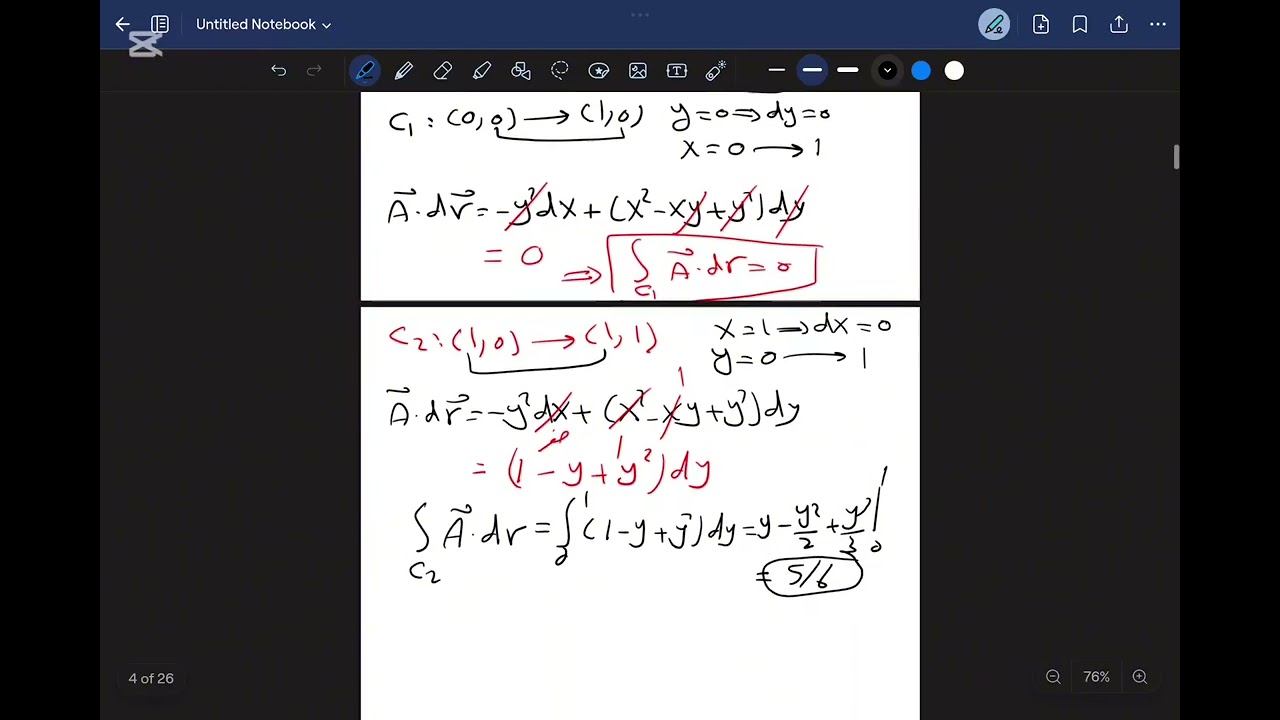 Untitled Notebook
C₁ : (0,0) → (1,0) y=0 ⇒ dy=0
x=0 → 1
A⃗·dr⃗ = -y²dx + (x²-xy+y²)dy
= 0
⇒ ∫_C₁ A⃗·dr = 0
C₂ : (1,0) → (1,1) x=1 ⇒ dx=0
y=0 → 1
1
A⃗·dr⃗ = -y²dx + (x²-xy+y²)dy
صفر 1
= (1-y+y²)dy
∫_C₂ A⃗·dr = ∫₀¹ (1-y+y²)dy = y - y²/2 + y³/3 |₀¹
= 5/6
4 of 26
76%